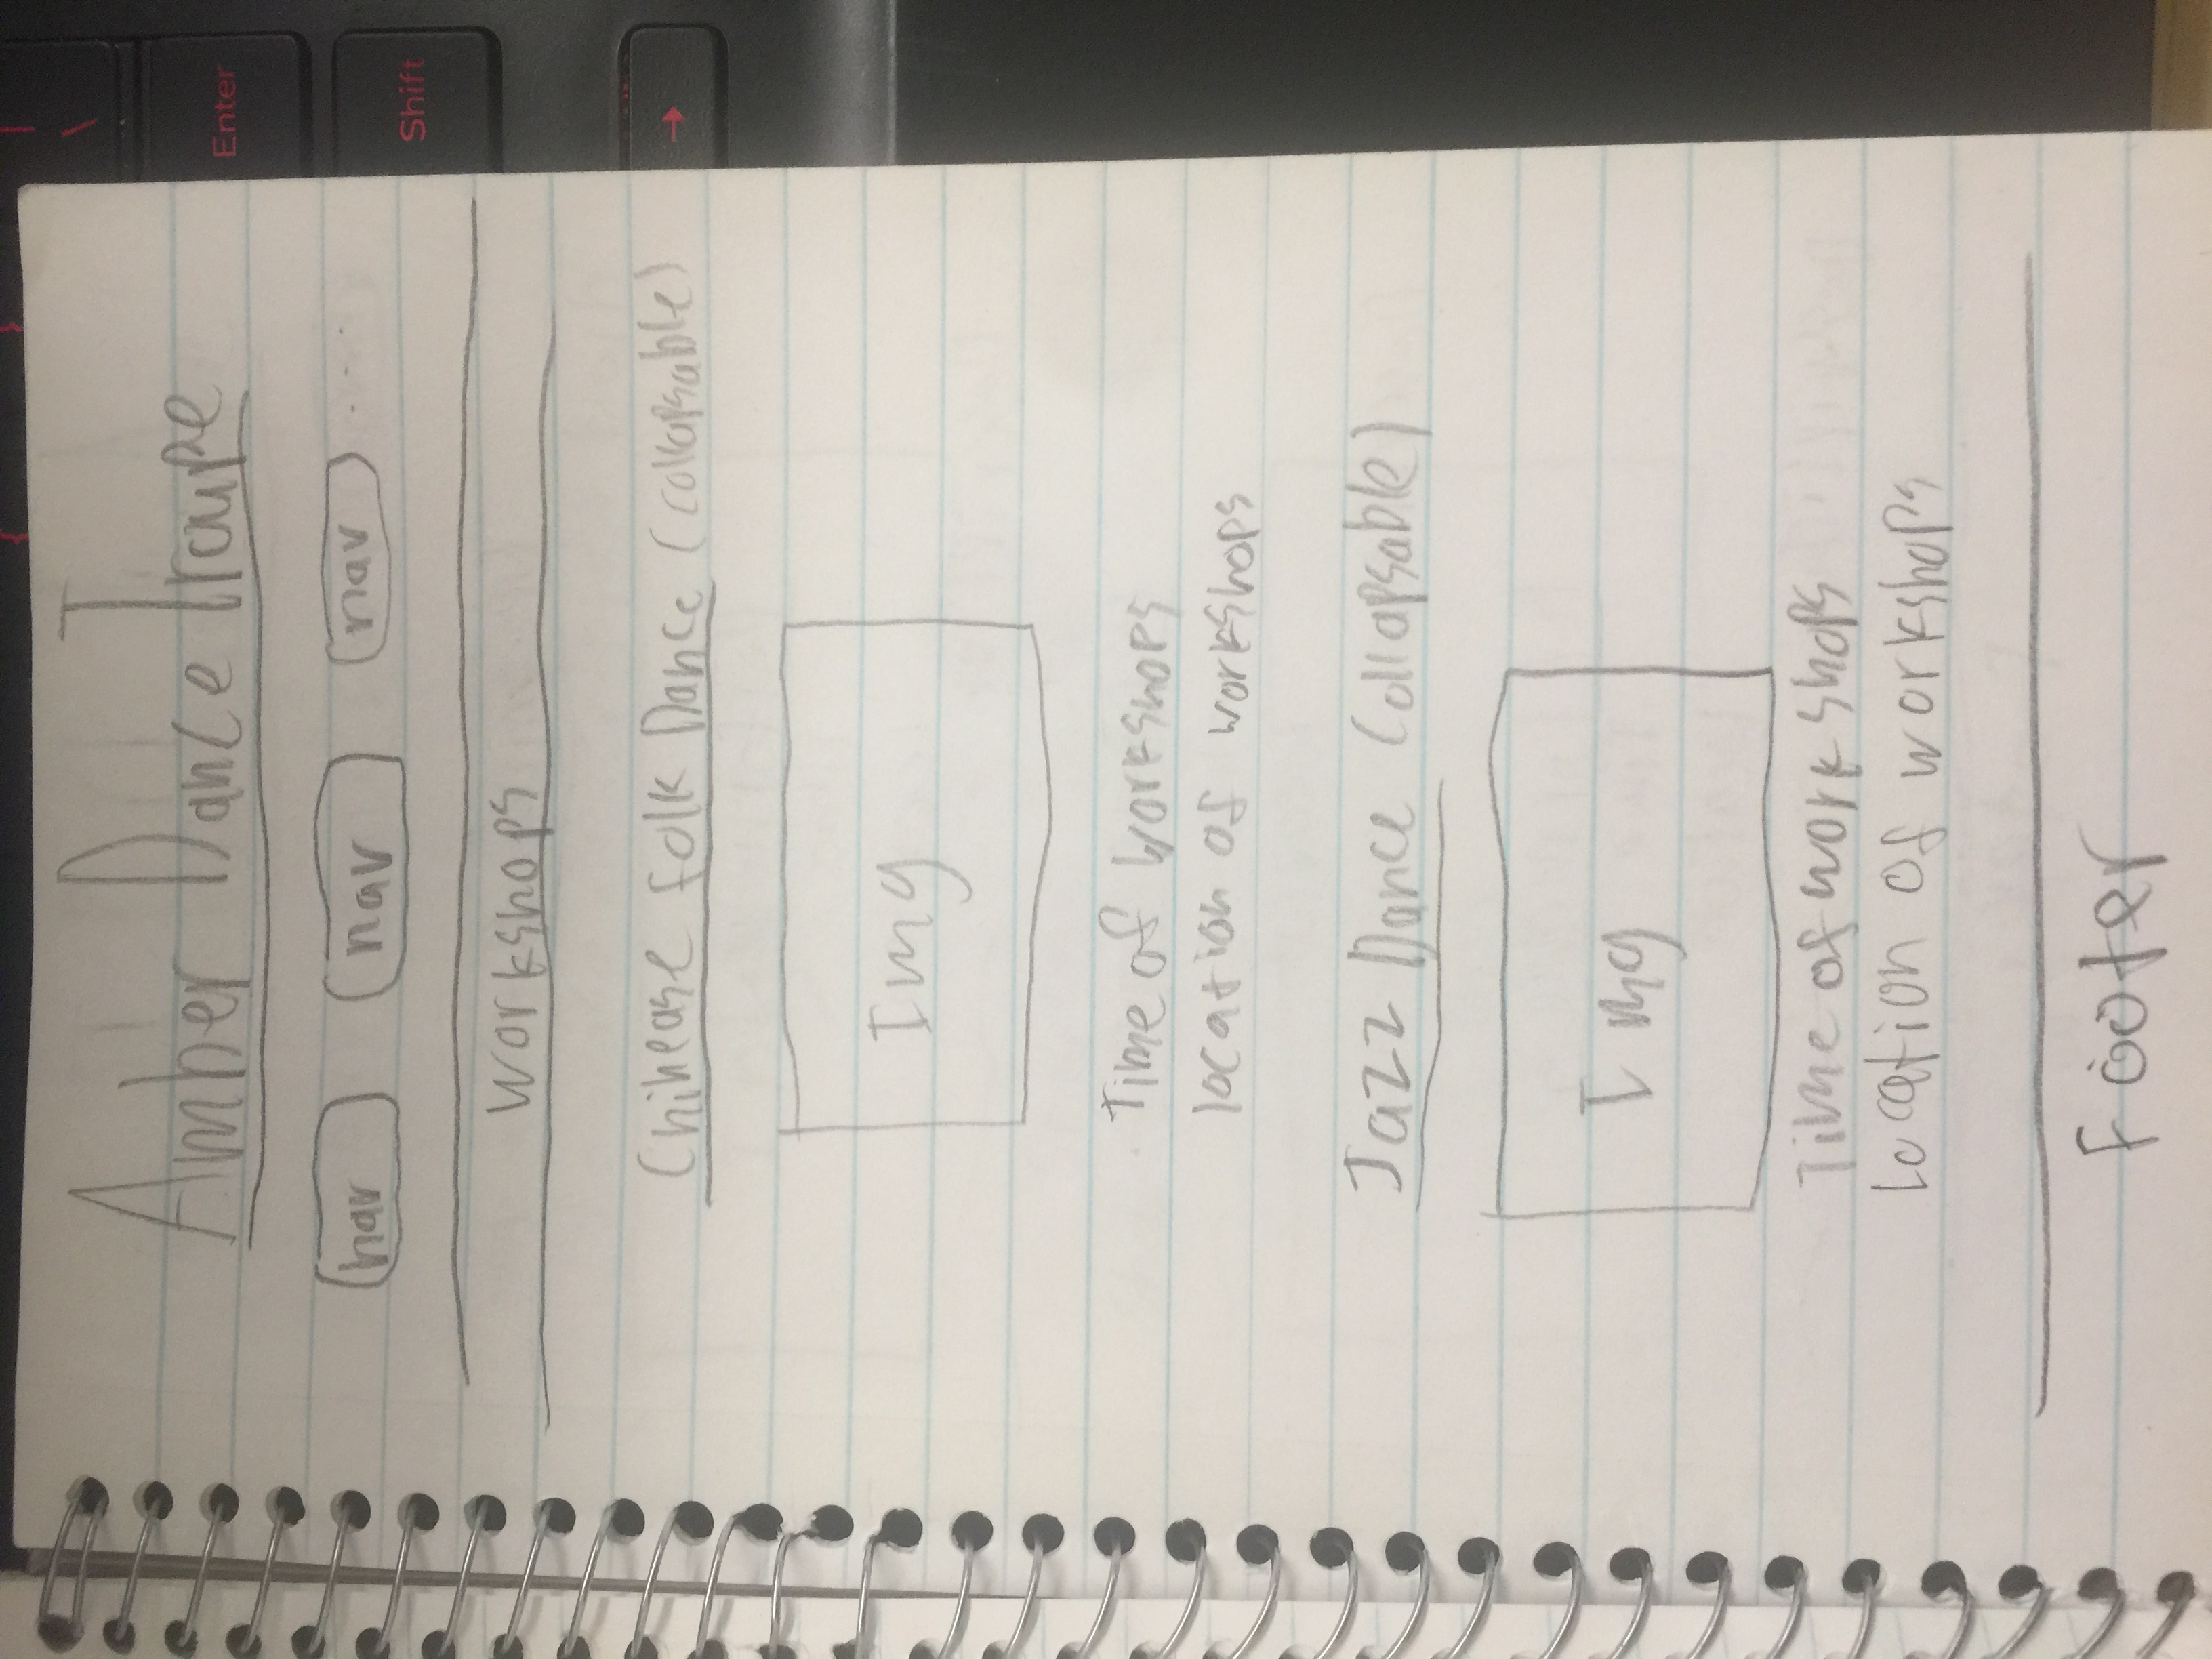 Amber Dance Troupe
nav nav nav ....
Workshops
Chinease folk Dance (collapsable)
Img
Time of workshops
location of workshops
Jazz Dance (collapsable)
Img
Time of workshops
Location of workshops
Footer
{ } |
\
Enter
Shift
→